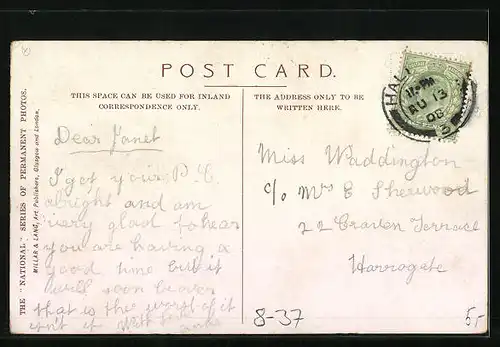 POST CARD.
THIS SPACE CAN BE USED FOR INLAND
CORRESPONDENCE ONLY.
THE ADDRESS ONLY TO BE
WRITTEN HERE.
THE "NATIONAL" SERIES OF PERMANENT PHOTOS.
MILLAR & LANG, Art Publishers, Glasgow and London.
Dear Janet
I got your P.C.
alright and am
very glad to hear
you are having a
good time but it
will soon be over
that is the worst of it
isn't it
Miss Waddington
c/o Mrs E Sherwood
22 Craven Terrace
Harrogate
HALI
PM
AU 13
08
8-37
5,-